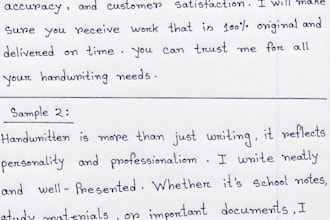 accuracy, and customer satisfaction. I will make
sure you receive work that is 100% original and
delivered on time. you can trust me for all
your handwriting needs.
Sample 2:
Handwritten is more than just writing, it reflects
personality and professionalism. I write neatly
and well-Presented. Whether it's school notes,
study materials, or important documents, I